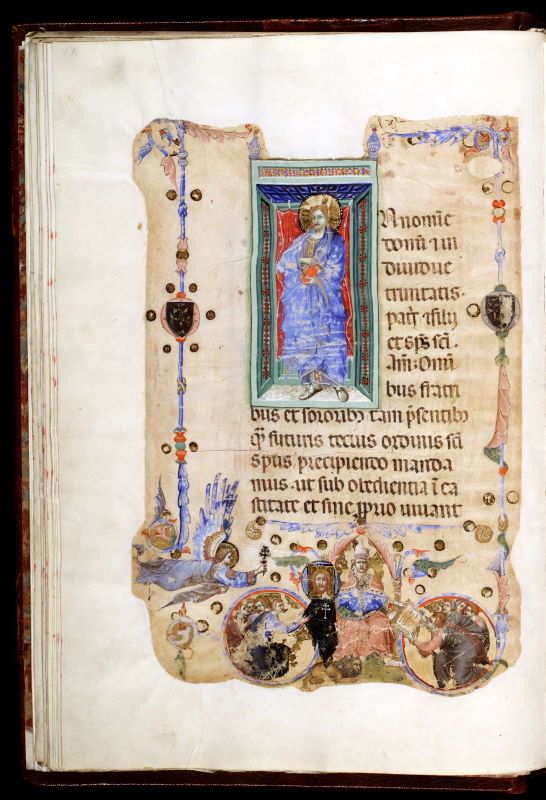 N nomine
domini et in
diuidue
trinitatis.
patris et filij
et sp̄s sc̄i.
Am̄: Omi
bus fratri
bus et sororibȝ tam p̄sentibȝ
ꝙ futuris tocius ordinis sc̄i
sp̄tis precipiendo manda
mus. ut sub obedientia ī ca
stitate et sine ꝓprio uiuant